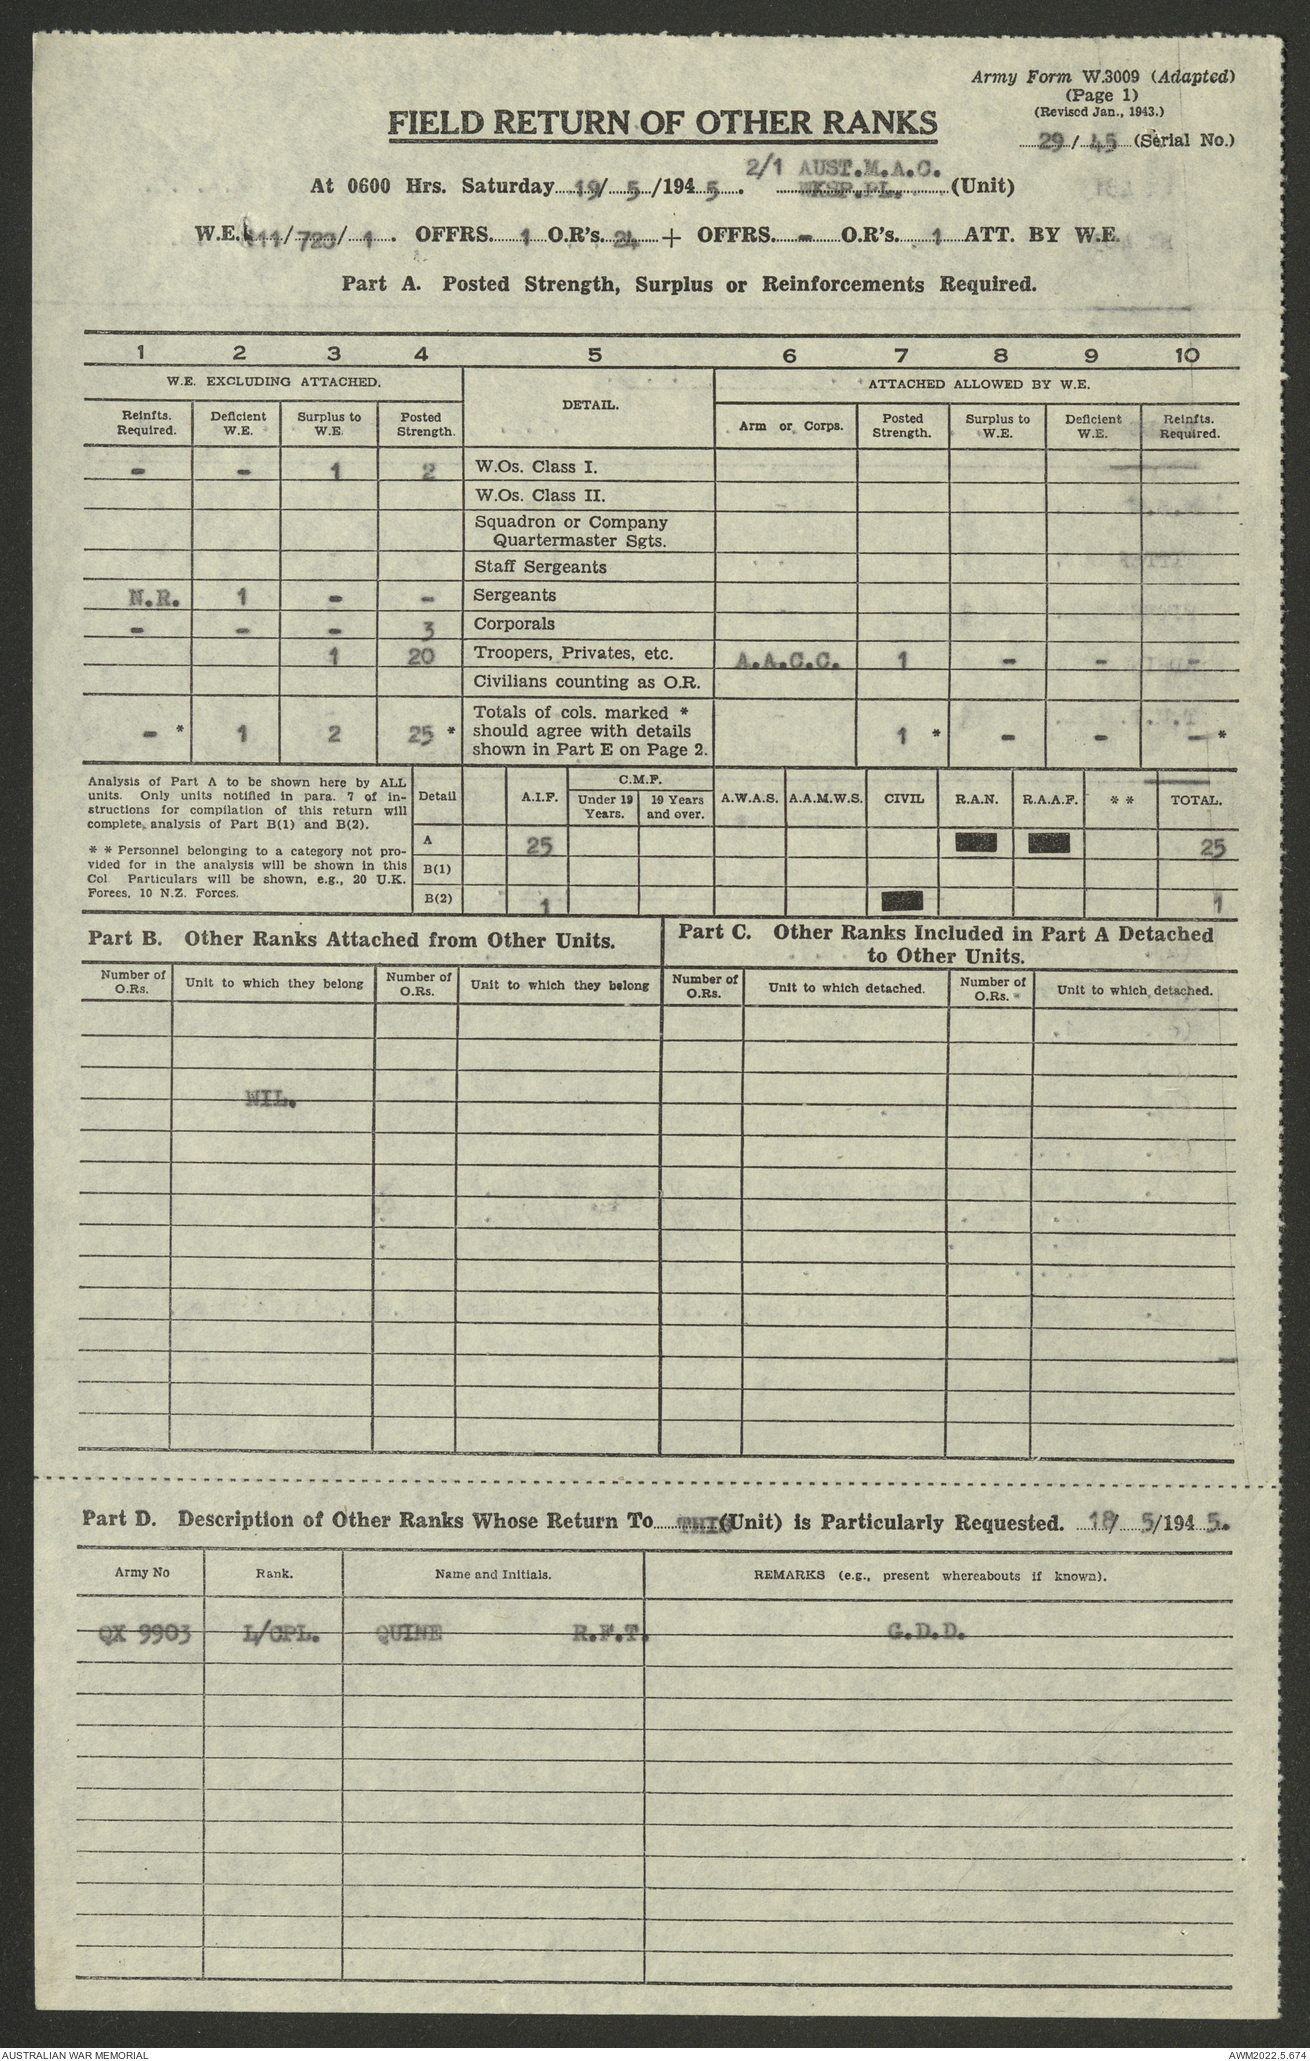 Army Form W.3009 (Adapted)
(Page 1)
(Revised Jan., 1943.)
29/45 (Serial No.)
FIELD RETURN OF OTHER RANKS
2/1 AUST.M.A.C.
At 0600 Hrs. Saturday 19/5/1945. WKSP.PL. (Unit)
W.E. 111/723/1. OFFRS. 1 O.R's. 24 + OFFRS. - O.R's. 1 ATT. BY W.E.
Part A. Posted Strength, Surplus or Reinforcements Required.
1 2 3 4 5 6 7 8 9 10
W.E. EXCLUDING ATTACHED. DETAIL. ATTACHED ALLOWED BY W.E.
Reinfts. Required. Deficient W.E. Surplus to W.E. Posted Strength. Arm or Corps. Posted Strength. Surplus to W.E. Deficient W.E. Reinfts. Required.
- - 1 2 W.Os. Class I.
W.Os. Class II.
Squadron or Company
Quartermaster Sgts.
Staff Sergeants
N.R. 1 - - Sergeants
- - - 3 Corporals
1 20 Troopers, Privates, etc. A.A.C.C. 1 - - -
Civilians counting as O.R.
Totals of cols. marked *
- * 1 2 25 * should agree with details 1 * - - - *
shown in Part E on Page 2.
Analysis of Part A to be shown here by ALL
units. Only units notified in para. 7 of in-
structions for compilation of this return will
complete analysis of Part B(1) and B(2).
* * Personnel belonging to a category not pro-
vided for in the analysis will be shown in this
Col. Particulars will be shown, e.g., 20 U.K.
Forces, 10 N.Z. Forces.
C.M.F.
Detail A.I.F. Under 19 Years. 19 Years and over. A.W.A.S. A.A.M.W.S. CIVIL R.A.N. R.A.A.F. * * TOTAL.
A 25 25
B(1)
B(2) 1 1
Part B. Other Ranks Attached from Other Units.
Part C. Other Ranks Included in Part A Detached
to Other Units.
Number of O.Rs. Unit to which they belong Number of O.Rs. Unit to which they belong Number of O.Rs. Unit to which detached. Number of O.Rs. Unit to which detached.
NIL.
Part D. Description of Other Ranks Whose Return To THIS (Unit) is Particularly Requested. 18/5/1945.
Army No Rank. Name and Initials. REMARKS (e.g., present whereabouts if known).
QX 9903 L/CPL. QUINE R.F.T. G.D.D.
AUSTRALIAN WAR MEMORIAL
AWM2022.5.674